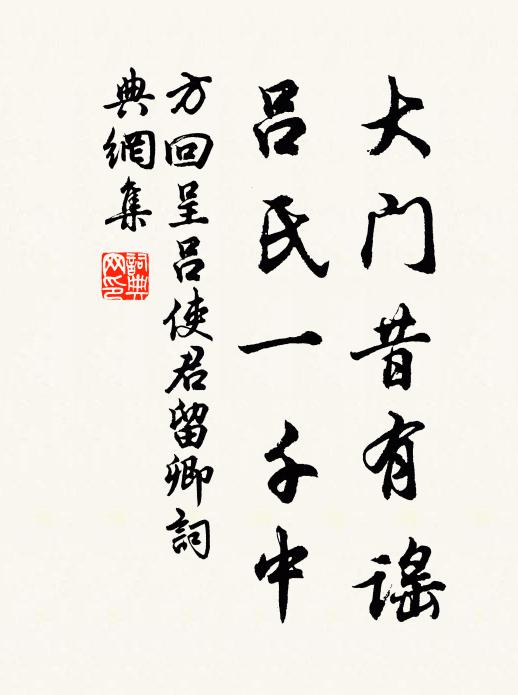 大门昔有谣
吕氏一千中
方回呈吕使君留卿詞
典網集
詞典网印